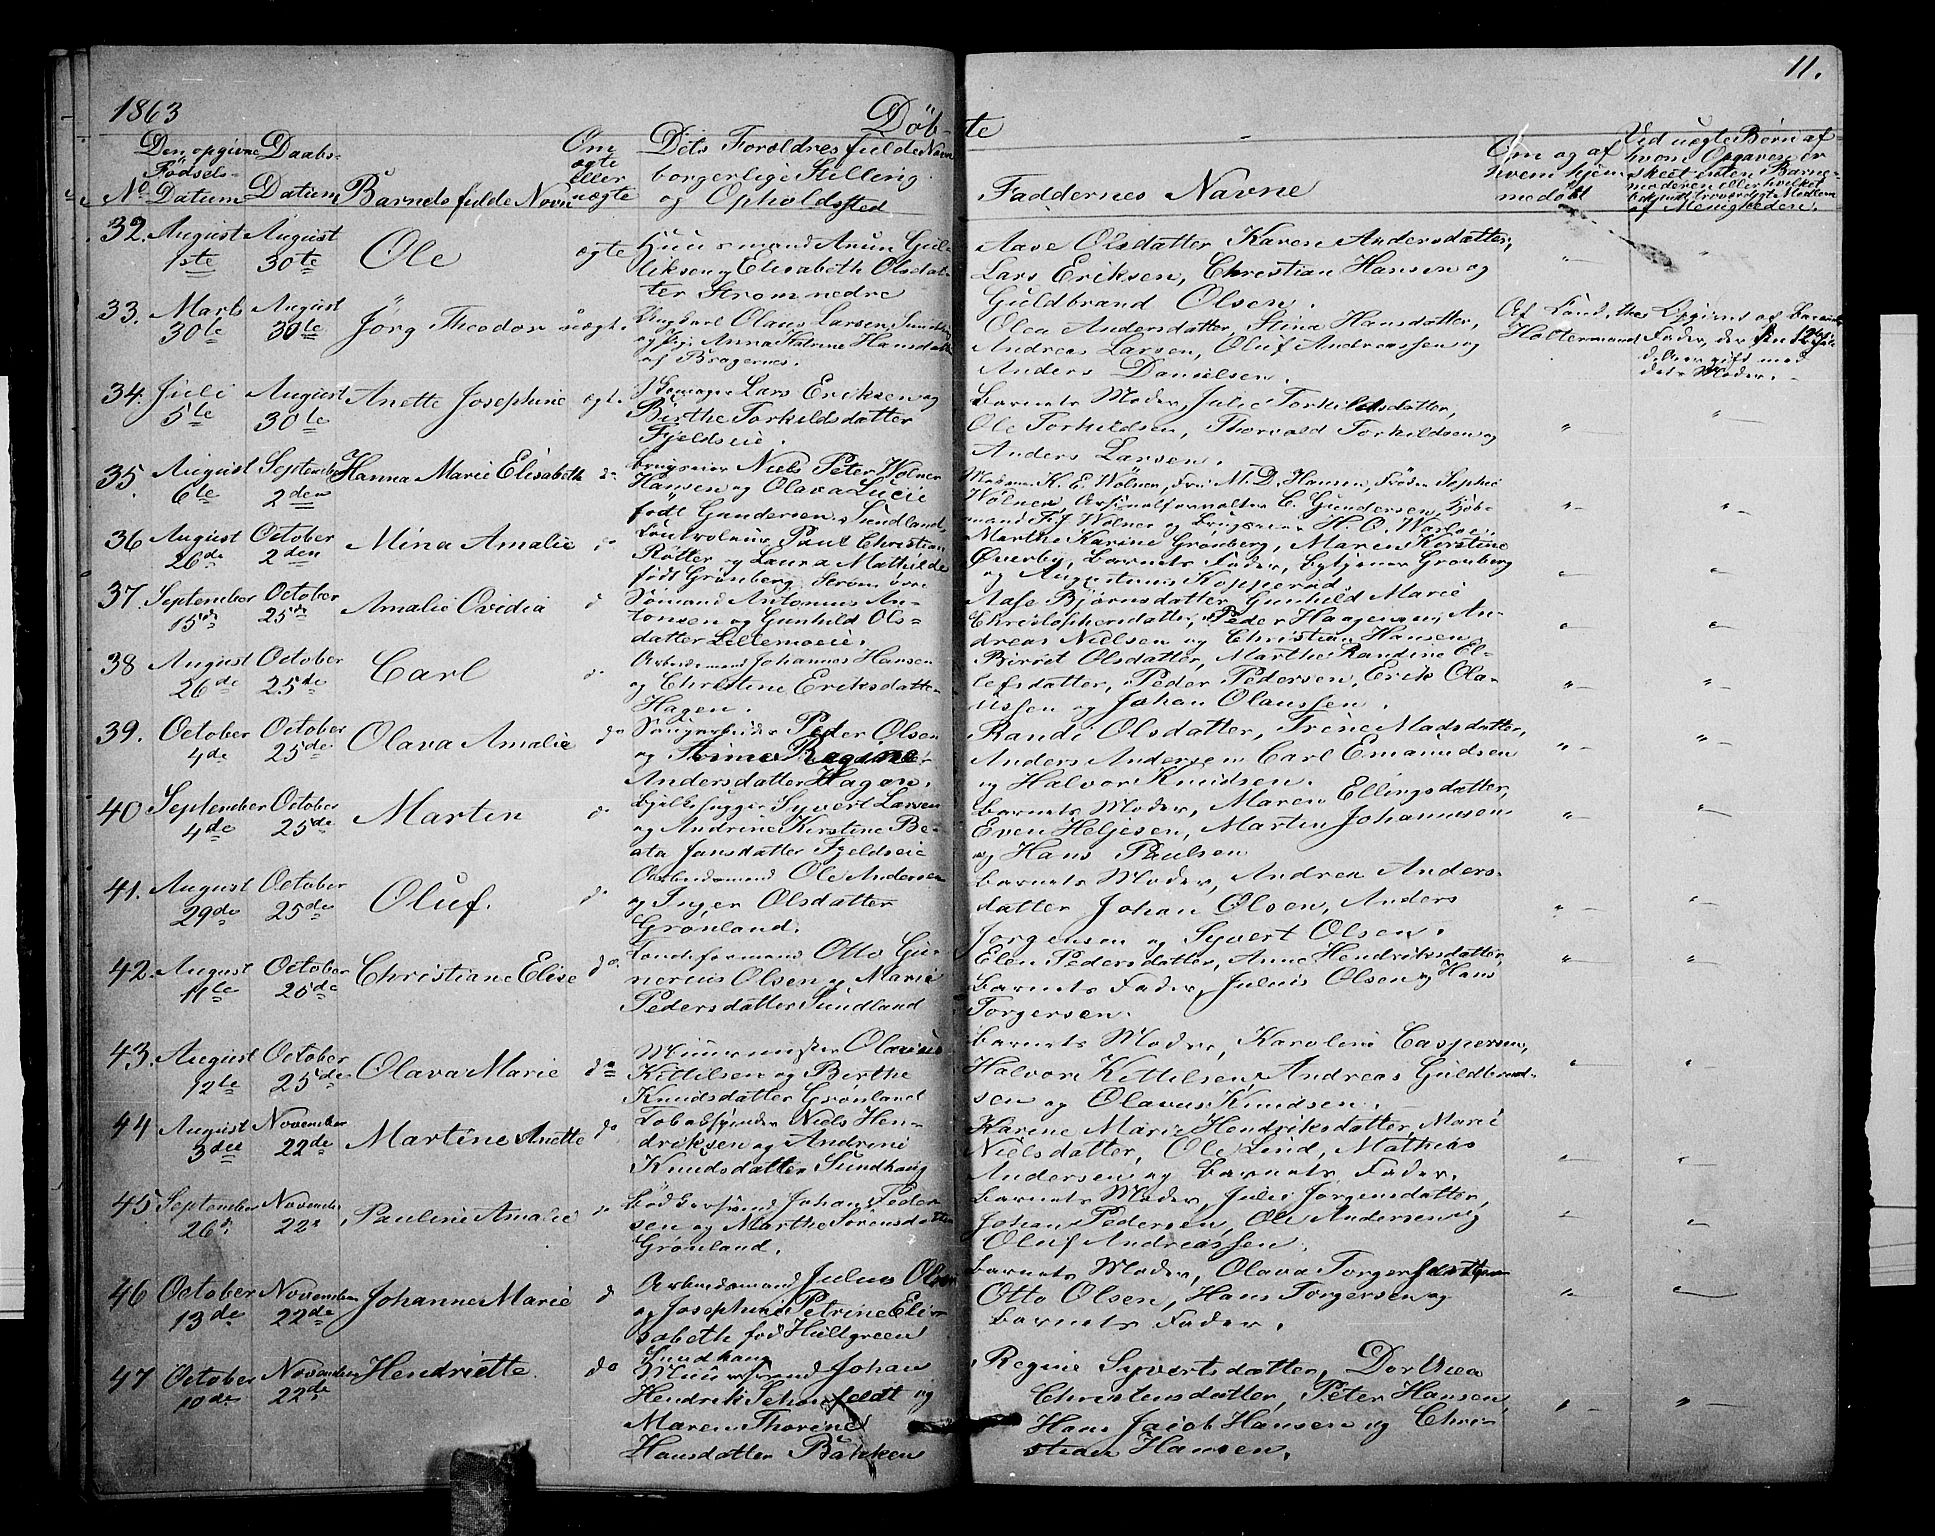 11.
1863 Döbte
No Den opgivne Födsels-Datum Daabs-Datum Barnets fulde Navn Om ægte eller uægte Dets Forældres fulde Navn borgerlige Stilling og Opholdssted
Faddernes Navne Om og af hvem hjemmedöbt Ved uægte Børn af hvem Opgaven er skeet enten Barnemoderen eller hvilket af Menigheden.
32. August 1ste August 30te Ole ægte
Huusmand Anun Gul-
liksen og Elisabeth Olsdat-
ter Strømnedre
Aase Olsdatter, Karen Andersdatter,
Lars Eriksen, Christian Hansen og
Guldbrand Olsen.
33. Marts 30te August 30te Jörg Theodor uægt.
Ungkarl Olaus Larsen Sundhaug
og Pige Anna Katrine Hansdatter
af Bragernes.
Olea Andersdatter, Stina Hansdatter,
Andreas Larsen, Oluf Andreassen og
Anders Danielsen.
Holtermand
Opgivet af Barnets
Fader, der
gift med
dets Moder.
34. Juli 5te August 30te Anette Josephine ægt.
Lars Eriksen og
Birthe Torkildsdatter
Fjeldseie.
Barnets Moder, Julie Torkildsdatter,
Ole Torkildsen, Thorvald Torkildsen og
Anders Larsen.
35. August 6te September 2den Hanna Marie Elisabeth do
Brugseier Niels Peter Wölner
Hansen og Olava Lucie
født Gundersen, Sundland.
Madame K. E. Wölner, Frü M. D. Hansen, Frøken Sophie
Wölner, Arsenalforvalter C. Gundersen, Kjöb-
mand F. J. Wölner og Brugseier H. O. Warloe.
36 August 26de October 2den Mina Amalie do
Controleur Paul Christian
Rötter og Laura Mathilde
født Grønberg. Strøm övre
Marthe Karine Grønberg, Maren Kirstine
Øverby, Barnets Fader, Grønberg
og Augustinus Kopperud.
37 September 15de October 25de Amalie Ovidia d
Sømand Antonius An-
tonsen og Gunhild Ols-
datter Liltemoeie.
Aase Bjørnsdatter, Gunhild Marie
Christophersdatter, Peder Haagensen, An-
dreas Nielsen og Christian Hansen.
38 August 26de October 25de Carl do
Arbeidsmand Johannes Hansen
og Christine Eriksdatter
Hagen.
Birret Olsdatter, Marthe Randine El-
lefsdatter, Peder Pedersen, Erik Ola-
ussen og Johan Olaussen.
39. October 4de October 25de Olava Amalie do
Peder Olsen
og Trine Regine
Andersdatter Hagen.
Randi Olsdatter, Trine Madsdatter,
Anders Andersen Carl Emanuelsen
og Halvor Knudsen.
40 September 4de October 25de Martin do
Bjelkehugger Syvert Larsen
og Andrine Kirstine Be-
ata Jansdatter Fjeldseie
Barnets Moder, Maren Ellingsdatter,
Even Heljesen, Martin Johannesen
og Hans Paulsen
41. August 29de October 25de Oluf. do
Arbeidsmand Ole Andersen
og Inger Olsdatter
Grønland.
Barnets Moder, Andrea Anders-
datter Johan Olsen, Anders
Jörgensen og Syvert Olsen.
42. August 11te October 25de Christiane Elise do
Otto Gu-
nerius Olsen og Marie
Pedersdatter Sundland
Elen Pedersdatter, Anne Hendriksdatter,
Barnets Fader, Julius Olsen og Hans
Torgersen.
43. August 12te October 25de Olava Marie do
Muurmester Olavus
Kittilsen og Birthe
Knudsdatter Grønland
Barnets Moder, Karoline Caspersen,
Halvor Kittelsen, Andreas Guldbrand-
sen og Olavus Knudsen.
44 August 3die November 22de Martine Anette do
Tobakspinder Niels Hen-
driksen og Andrine
Knudsdatter Sundhaug
Karine Marie Hendriksdatter, Marie
Nielsdatter, Ole Lind, Mathias
Andersen og Barnets Fader.
45 September 26d November 22d Pauline Amalie do
Bödkersvend Johan Peder-
sen og Marthe Sørensdatter
Grønland.
Barnets Moder, Julie Jorgensdatter,
Johan Pedersen, Ole Andersen og
Oluf Andreassen.
46 October 13de November 22de Johanne Marie d
Arbeidsmand Julius Olsen
og Josephine Petrine Eli-
sabeth fød Hultgreen
Sundhaug
Barnets Moder, Olava Torgersdatter
Otto Olsen, Hans Torgersen og
Barnets Fader.
47 October 10de November 22de Henriette do
Muursvend Johan
Hendrik Schonfeldt og
Maren Thorine
Hansdatter Bakken
Regine Syvertsdatter, Dorthea
Christensdatter, Peter Hansen,
Hans Jacob Hansen og Chri-
stian Hansen.